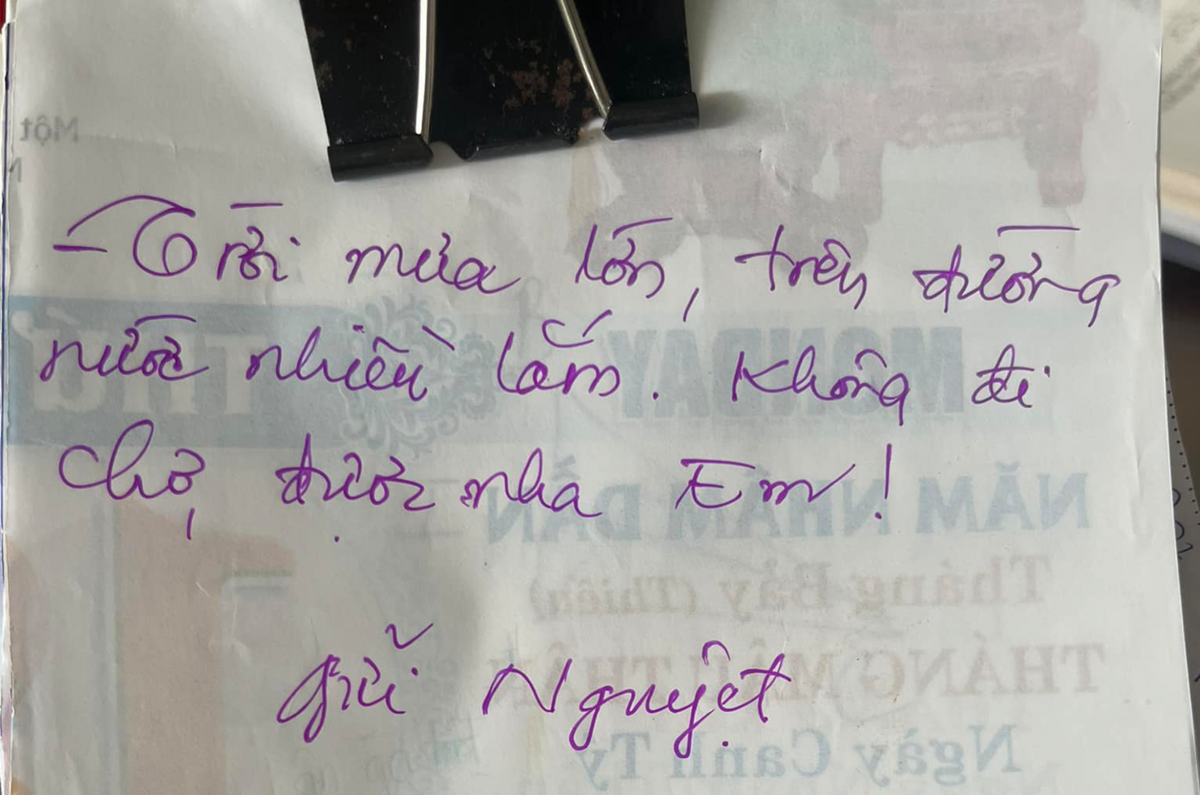 - Trời mưa lớn, trên đường
nước nhiều lắm. Không đi
chợ, được nha Em!
gửi Nguyệt
Một
MONDAY
THỨ
NĂM NHÂM DẦN
Tháng Bảy (Thiếu)
THÁNG MẬU THÂN
Ngày Canh Tý